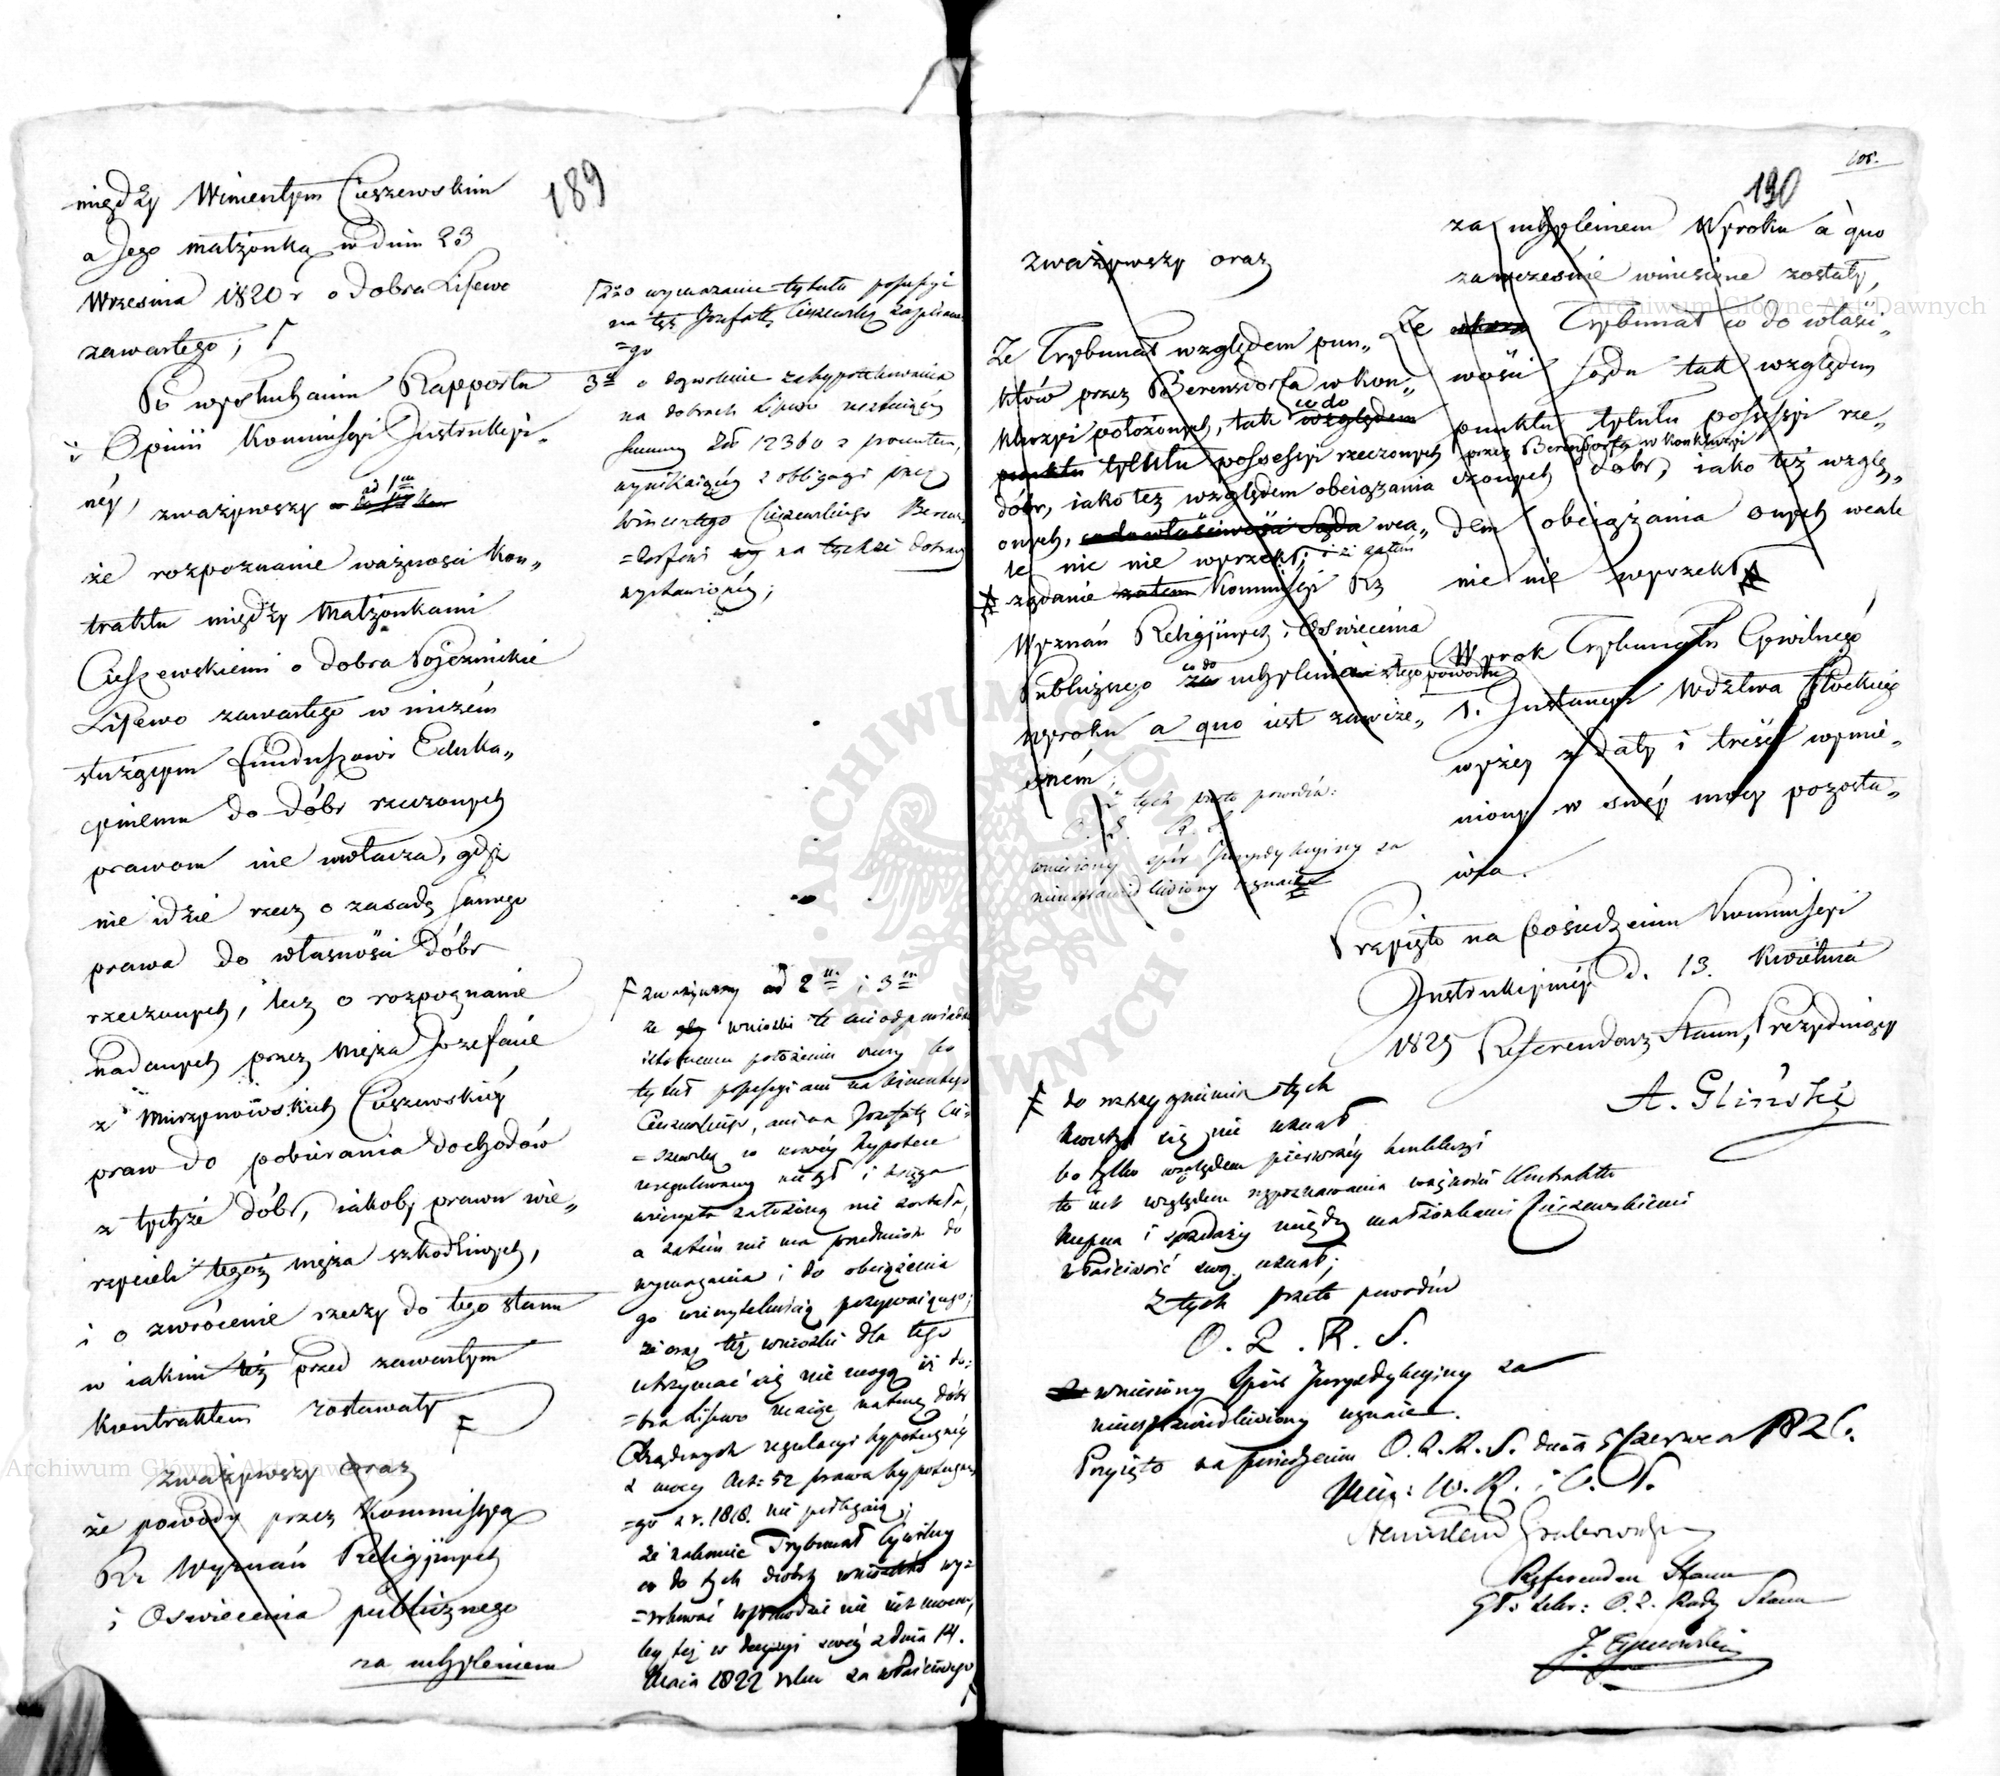 189
między Wincentym Cieszewskim
a Jego małżonką w dniu 23
Września 1820 r o dobra Lisewo
zawartego,
Po wysłuchaniu Rapportu
i Opinii Kommissyi Instrukcyi-
néy, zważywszy ad 1m
że rozpoznanie ważności kon-
traktu między Małżonkami
Cieszewskiemi o dobra Pojezuickie
Lisewo zawartego w niczém
służącym funduszowi Eduka-
cyinemu do dóbr rzeczonych
prawom nie uwłacza, gdyż
nie idzie rzecz o zasadę samego
prawa do własności dóbr
rzeczonych, lecz o rozpoznanie
nadanych przez męża Jozefacie
z Murzynowskich Cieszewskiéy
praw do pobierania dochodów
z tychże dóbr, iakoby prawu wie-
rzycieli tegoż męża szkodliwych,
i o zwrócenie rzeczy do tego stanu
w iakim też przed zawartym
kontraktem zostawały
zważywszy oraz
że powody przez Kommissyą
Rz Wyznań Religijnych
i Oswiecenia publicznego
za uchyleniem
2do wymazanie tytułu possessyi
na tęż Jozefatę Cieszewską zapisane-
=go
3o o dozwolenie zahypotekowania
na dobrach Lisewo resztuiącéy
summy Zł 12360 z procentem,
wynikaiącéy z obligacyi przez
Wincentego Cieszewskiego Berens-
=dorfowi na tychże dobrach
wystawionéy;
zważywszy ad 2m i 3m
że wnioski te nieodpowiadają
istotnemu położeniu rzeczy bo
tytuł possessyi ani na Wincentego
Cieszewskiego, ani na Jozefatę Cie-
=szewską w nowéy hypotece
uregulowany nie był i księga
wieczysta założoną nie została,
a zatém nie ma przedmiotu do
wymazania i do obciążenia
go wierzytelnością pozywaiącego;
że oraz też wnioski dla tego
utrzymać się nie mogą iż do-
=bra Lisewo maiąc naturę dóbr
Rządowych regulacyi hypoteczney
z mocy Art: 52 prawa hypoteczne-
=go z r. 1818. nie podlegaią;
że nakoniec Trybunał Cywilny
co do tych dwóch wniosków wy-
=rokować
też w decyzyi swéy z dnia 14.
Maia 1822 roku za właściwego
105.
190
zważywszy oraz
że Trybunał względem pun-
któw przez Berensdorfa w kon-
kluzyi położonych, tak co do względem
punktu tytułu possessyi rzeczonych
dóbr, iako też względem obciążania
onych, co do właściwości Sądu wca-
le nic nie wyrzekł; i że zatém
żądanie zatem Kommissyi Rz
Wyznań Religijnych i Oswiecenia
Publicznego co do za uchylenia z tego powodu
wyroku a quo iest zawcze-
sném;
z tych przeto powodów:
O. S. R. S.
wniesiony spór Juryzdykcyiny za
nieusprawiedliwiony uznaie
za uchyleniem Wyroku à quo
zawcześnie wniesione zostały,
że Trybunał co do właści-
wości Sądu tak względem
punktu tytułu possessyi rze-
przez Berensdorfa w konkluzyi
czonych dóbr, iako też wzglę-
dem obciążania onych wcale
nic nie wyrzekł
Wyrok Trybunału Cywilnego
1. Instancyi Wdztwa Płockiego
wyżey z daty i treści wymie-
niony w swéy mocy pozosta-
wia.
Przyięto na Posiedzeniu Kommissyi
Instrukcyinéy d. 13. Kwietnia
1825 Referendarz Stanu, Prezyduiący
A. Gliński
do rozstrzygnienia tych
kwestyi się nie uznał
bo tylko względem pierwszéy konkluzyi
to iest względem rozpoznawania ważności kontraktu
kupna i sprzedaży między małżonkami Cieszewskiemi
właściwość swą uznał;
Z tych przeto powodów
O. Z. R. S.
wniesiony spór Juryzdykcyiny za
nieusprawiedliwiony uznaie.
Przyięto na posiedzeniu O. Z. R. S. dnia 5 Czerwca 1826.
Min: W. R. i O. P.
Stanisław Grabowski
Referendarz Stanu
O. Z. Rady Stanu